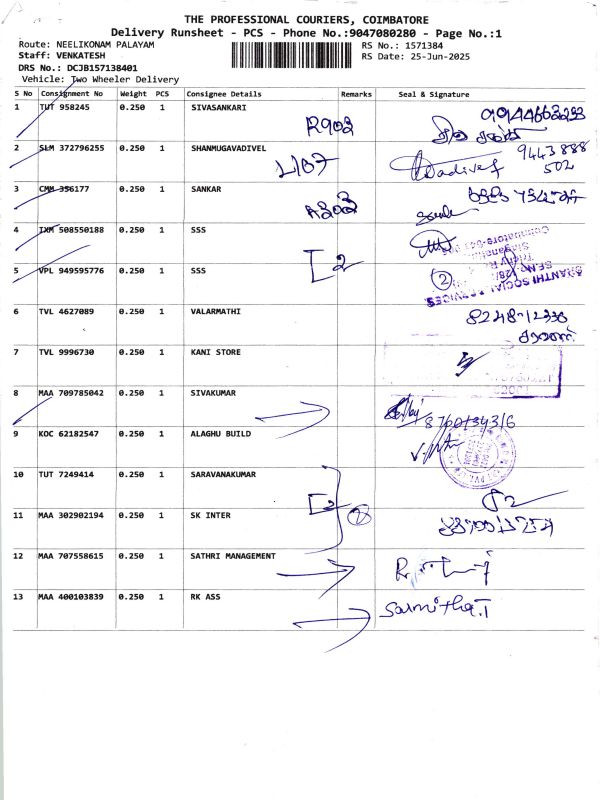 THE PROFESSIONAL COURIERS, COIMBATORE
Delivery Runsheet - PCS - Phone No.:9047080280 - Page No.:1
Route: NEELIKONAM PALAYAM
RS No.: 1571384
Staff: VENKATESH
RS Date: 25-Jun-2025
DRS No.: DCJB157138401
Vehicle: Two Wheeler Delivery
S No Consignment No Weight PCS Consignee Details Remarks Seal & Signature
1 TUT 958245 0.250 1 SIVASANKARI
R903
2 SLM 372796255 0.250 1 SHANMUGAVADIVEL
9443888
502
Vadivel
3 CMM 356177 0.250 1 SANKAR
4 IXM 508550188 0.250 1 SSS
[2
5 VPL 949595776 0.250 1 SSS
2
6 TVL 4627089 0.250 1 VALARMATHI
7 TVL 9996730 0.250 1 KANI STORE
8 MAA 709785042 0.250 1 SIVAKUMAR
9 KOC 62182547 0.250 1 ALAGHU BUILD
10 TUT 7249414 0.250 1 SARAVANAKUMAR
11 MAA 302902194 0.250 1 SK INTER
2
12 MAA 707558615 0.250 1 SATHRI MANAGEMENT
13 MAA 400103839 0.250 1 RK ASS
Sarmitha.T